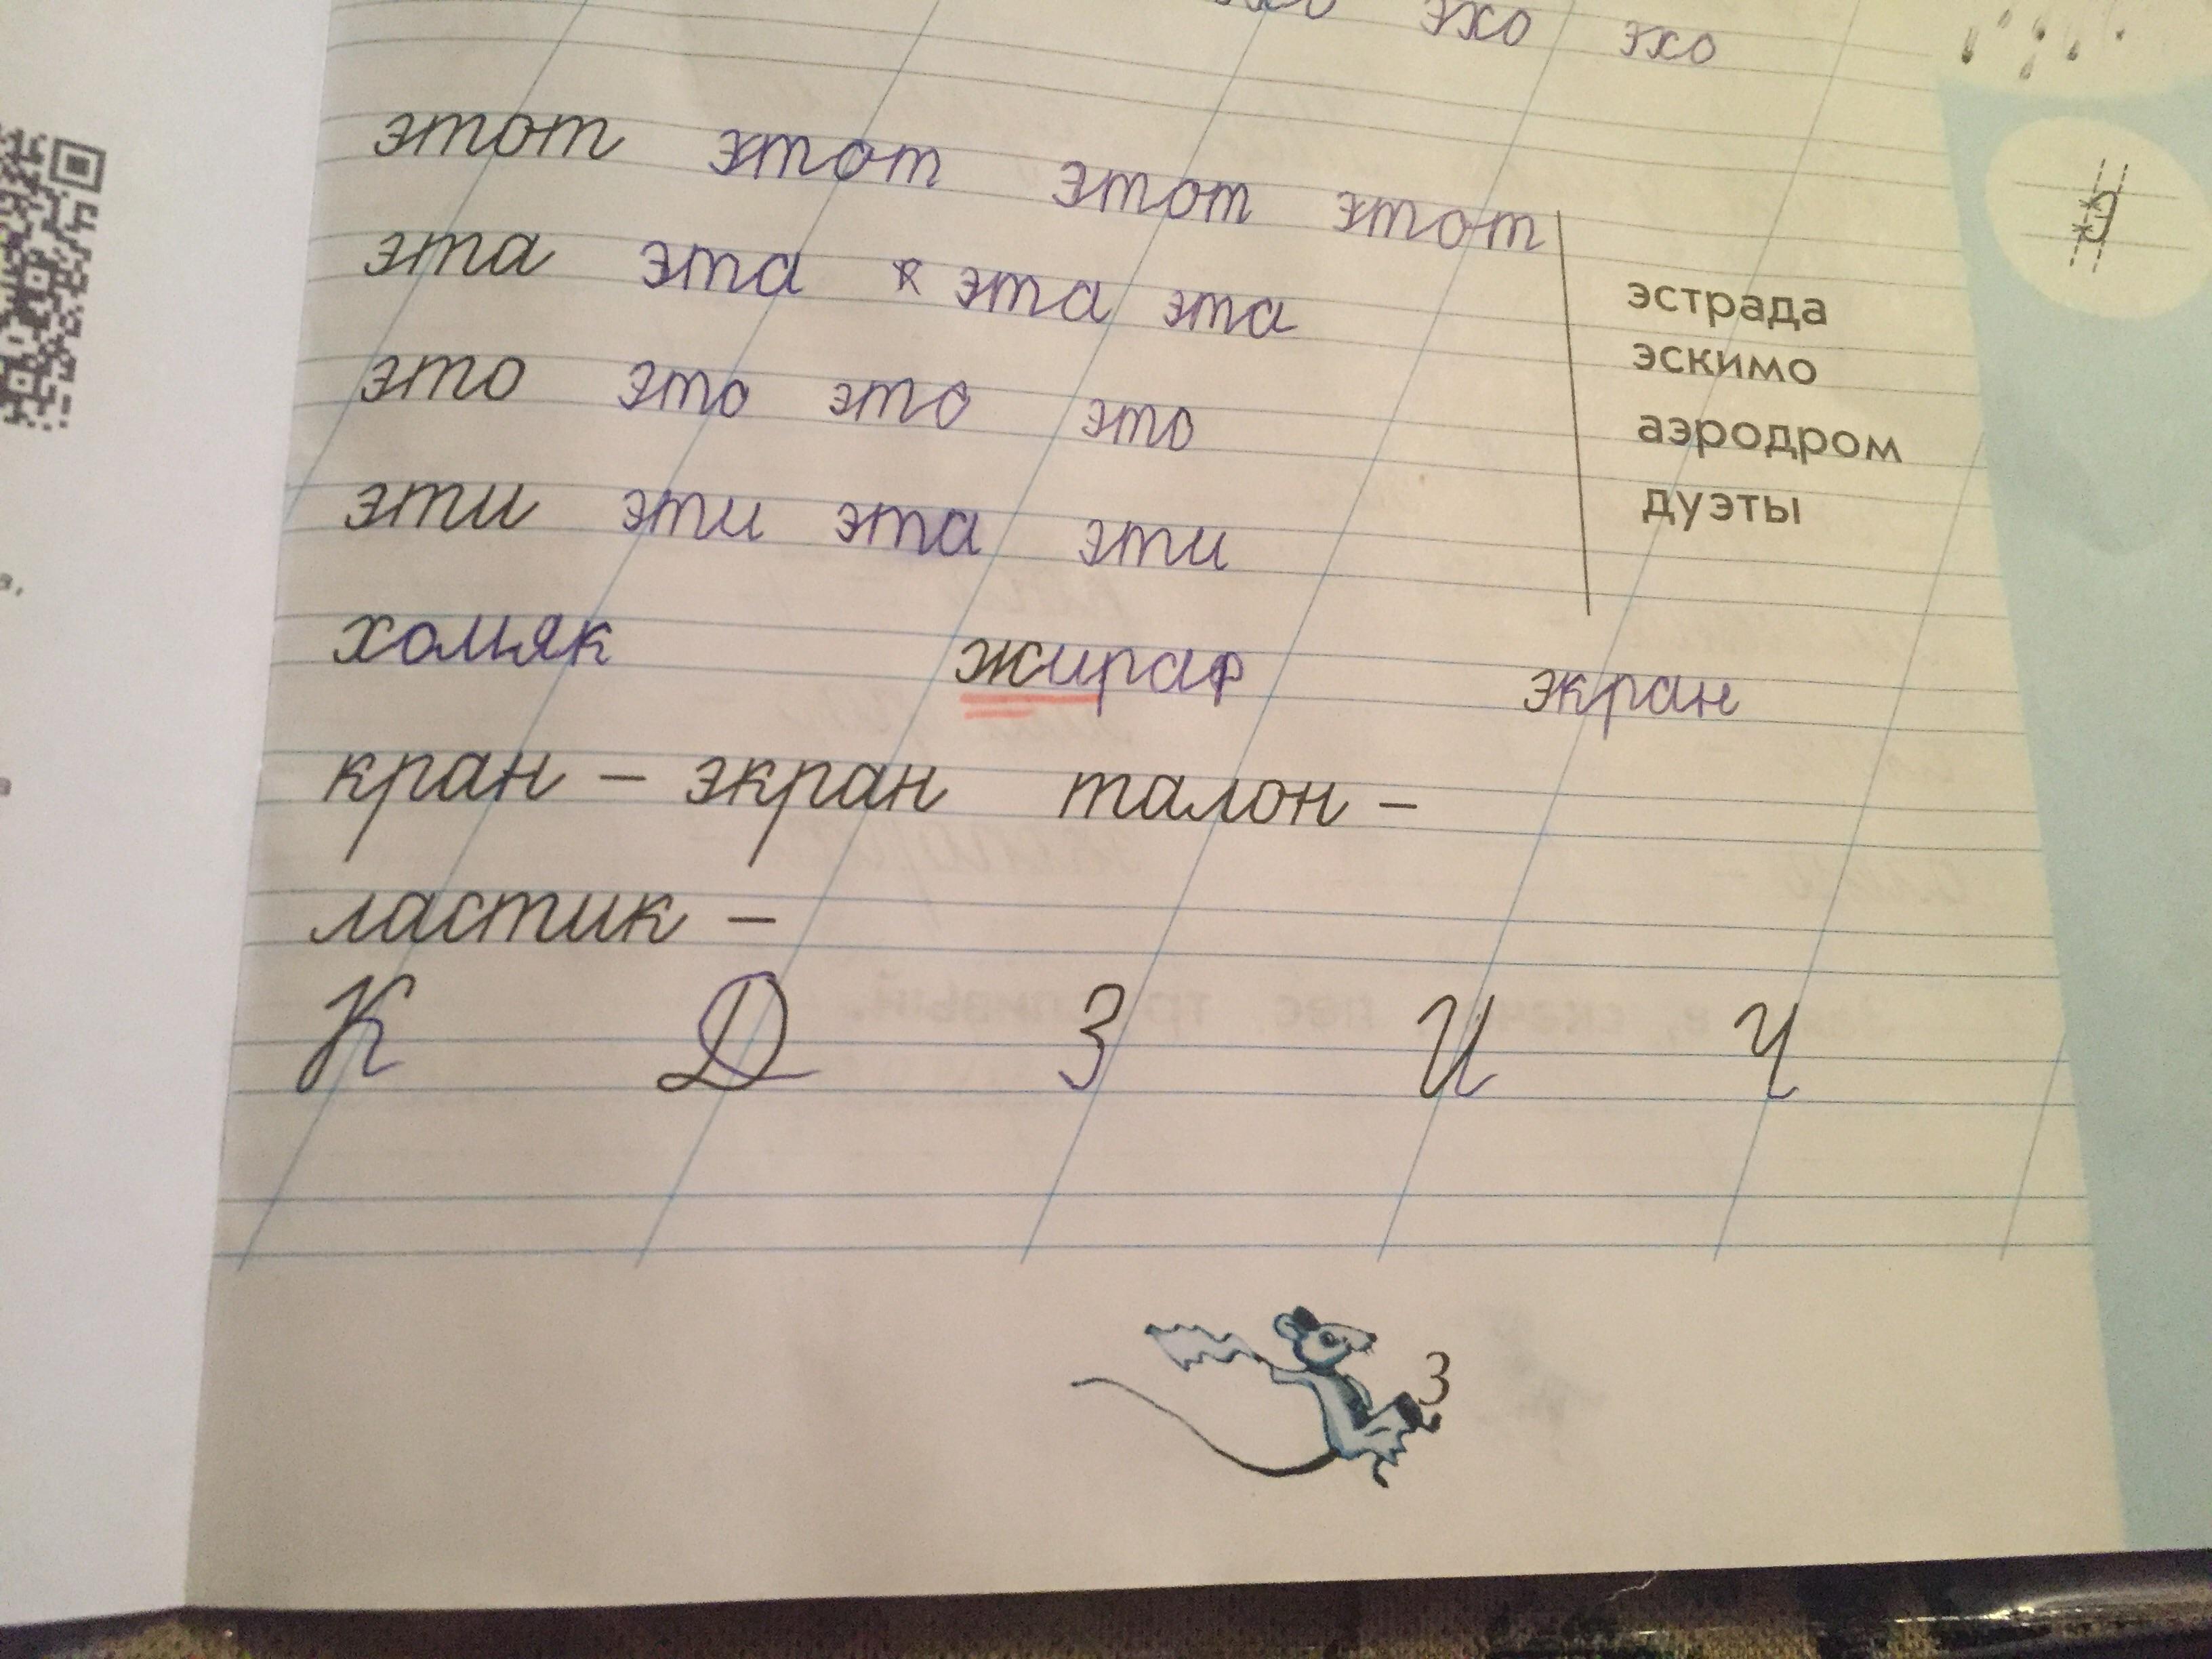 эхо эхо
этот этот этот этот
эта эта я эта эта
эстрада
это это это это
эскимо
аэродром
эти эти эта эти
дуэты
хомяк жираф экран
кран – экран талон –
ластик –
К Д З И Ч
3